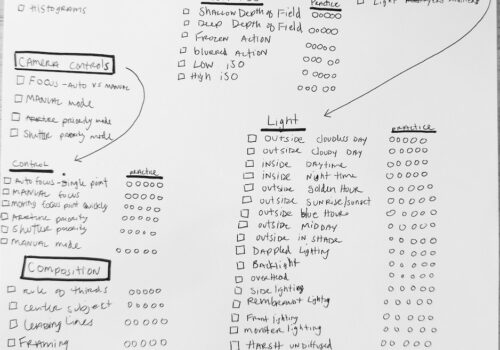 HISTOGRAMS
PRACTICE
Shallow Depth of Field
Deep Depth of Field
Frozen Action
blurred Action
LOW ISO
High ISO
Light
CAMERA CONTROLS
FOCUS - AUTO VS MANUAL
MANUAL mode
Aperture priority mode
Shutter priority mode
CONTROL PRACTICE
Auto focus - single point
MANUAL focus
moving focus point quickly
Aperture priority
Shutter priority
MANUAL mode
Composition
rule of thirds
center subject
Leading Lines
FRAMING
Light PRACTICE
OUTSIDE cloudless DAY
OUTSIDE cloudy DAY
INSIDE Daytime
INSIDE Night time
outside golden Hour
outside SUNRISE/sunset
outside blue Hour
outside MIDDAY
outside in SHADE
Dappled Lighting
Backlight
overhead
Side lighting
Rembrandt Lighting
Front lighting
monster lighting
HARSH UNDIFFUSED